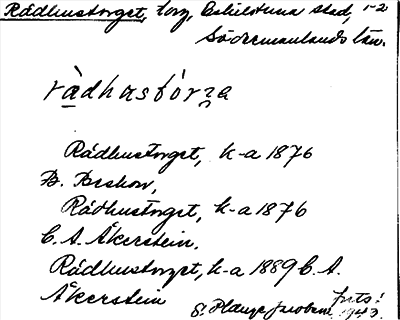 Rådhustorget, torg, Eskilstuna stad, 1-2
Södermanlands län.
rådhastórga
Rådhustorget, k-a 1876
B. Beskow,
Rådhustorget, k-a 1876
C. A. Åkerstein.
Rådhustorget, k-a 1889 C. A.
Åkerstein
1943.